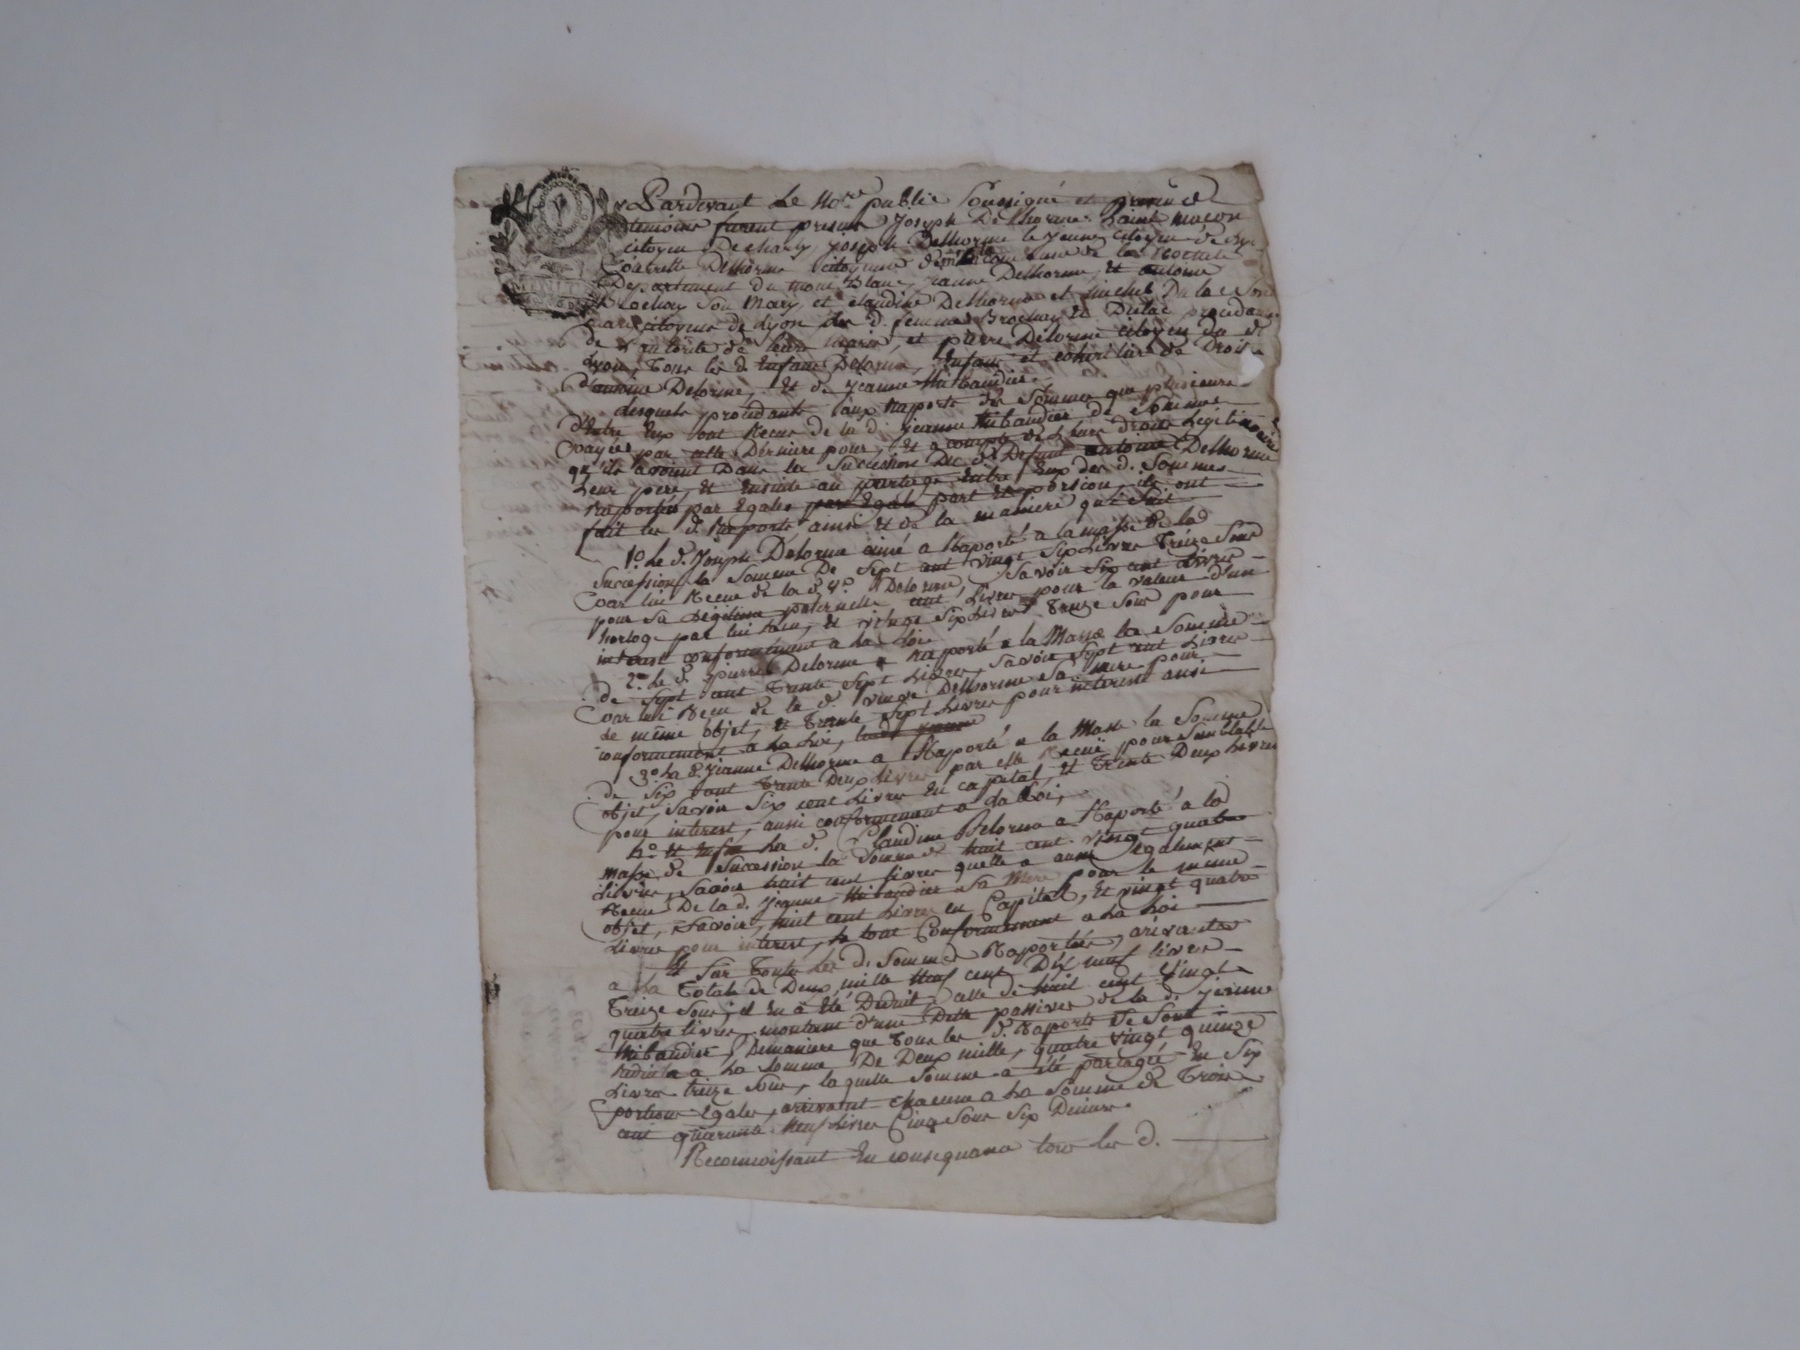 Pardevant Le No.re public soussigné et present
temoins furent presens Joseph Delhorme L'ainé macon
citoyen De charly, joseph Delhorme le jeune, citoyen de
Delhorme citoyenne de la Rochette
Departement du mont Blanc, jeanne Delhorme, et antoine
Brochay son Mary, et claudine Delhorme et Michel Dulac son
mari citoyens de Lyon les d. femmes Brochay et Dulac procedant
de l'autorité de leurs maris, et pierre Delorme citoyen du d.
Lyon, Tous les d. enfans Delorme, Enfans et cohéritiers de Droit
d'antoine Delorme, et d. jeanne thibaudier
Lesquels procedants aux Raports des sommes que plusieurs
d'Entre Eux ont Recus de la d. jeanne thibaudier de sommes
payées par cette Derniere pour, et a compte de Leurs droits Légitimaires
qu'ils avoient Dans la succession Du d. Defunt antoine Delhorme
Leur pere, Et Ensuite au partage Entre Eux des d. sommes
Raportées par Egales par Egale part et portion, ils ont
fait les d. Raports ainsi et de la maniere qui suit
1.o Le d. Joseph Delorme ainé a Raporté a la masse de la
succession la somme De sept cent vingt six Livres Treize sous
par lui Recue de la d. v.e Delorme, savoir six cent Livres
pour sa Legitime paternelle, cent Livres pour la valeur d'une
horloge par lui, et vingt six Livres Treize sous pour
interest conformément a La Loi
2.o Le d. pierre Delorme a Raporté a la Masse la somme
de sept cent Trente sept Livres, savoir sept cent Livres
par lui Recu de la d. veuve Delhorme sa mere pour
le même objet, et Trente sept Livres pour interest aussi
conformément a La Loi,
3.o La d. jeanne Delhorme a Raporté a la Masse la somme
de six cent Trente Deux Livres par elle Recuë pour semblable
objet, savoir six cent Livres En capital, et Trente Deux Livres
pour interest, aussi conformément a La Loi,
4.o et Enfin La d. Claudine Delorme a Raporté a la
masse de succession la somme de huit cent vingt quatre
Livres, savoir huit cent livres quelle a aussi également
Recue De la d. jeanne thibaudier sa Mere pour le même
objet, savoir, huit cent Livres en Capital, Et vingt quatre
Livres pour interest, le tout Conformément a La Loi
Sur Toutes Les d. sommes Raportées, arivantes
a La Totale de Deux mille Neuf cent Dix neuf livres
Treize sous, il En a été Deduit, celle de huit cent vingt
quatre livres, montant d'une Dette passive de la d. jeanne
thibaudier, Demaniere que Tous les d. Raports se sont
Reduits a La somme De Deux mille, quatre vingt quinze
Livres treize sous, laquelle somme a été partagée En six
portions Egales, arrivant chacune a La somme de Trois
cent quarante Neuf Livres Cinq sous six Deniers.
Reconnoissant En consequance tous les d.